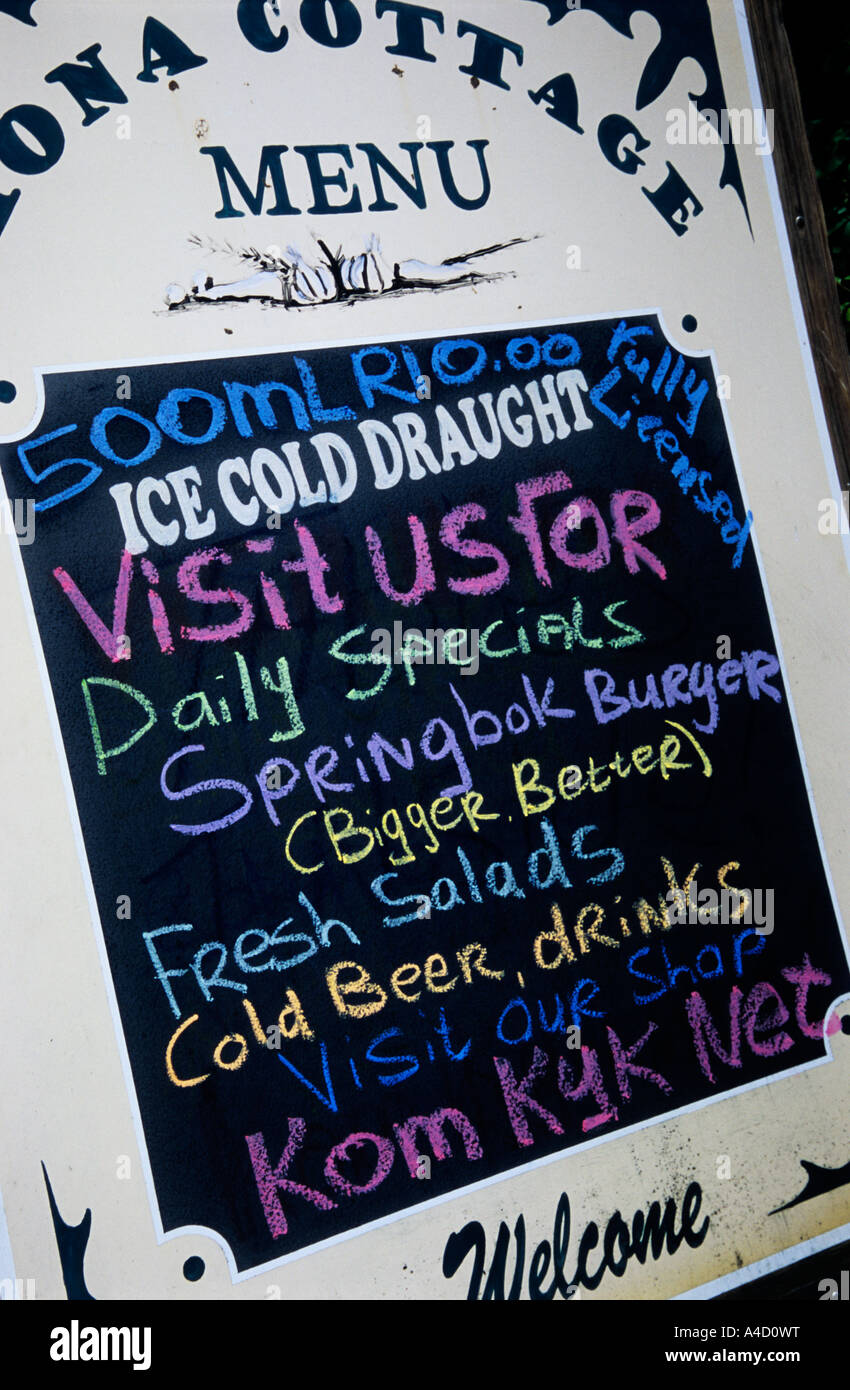 ONA COTTAGE
MENU
500mL R10.00
Fully Licensed
ICE COLD DRAUGHT
Visit us For
Daily Specials
Springbok Burger
(Bigger, Better)
Fresh Salads
Cold Beer, drinks
Visit our Shop
Kom Kyk Net.
Welcome
alamy
Image ID: A4D0WT
www.alamy.com